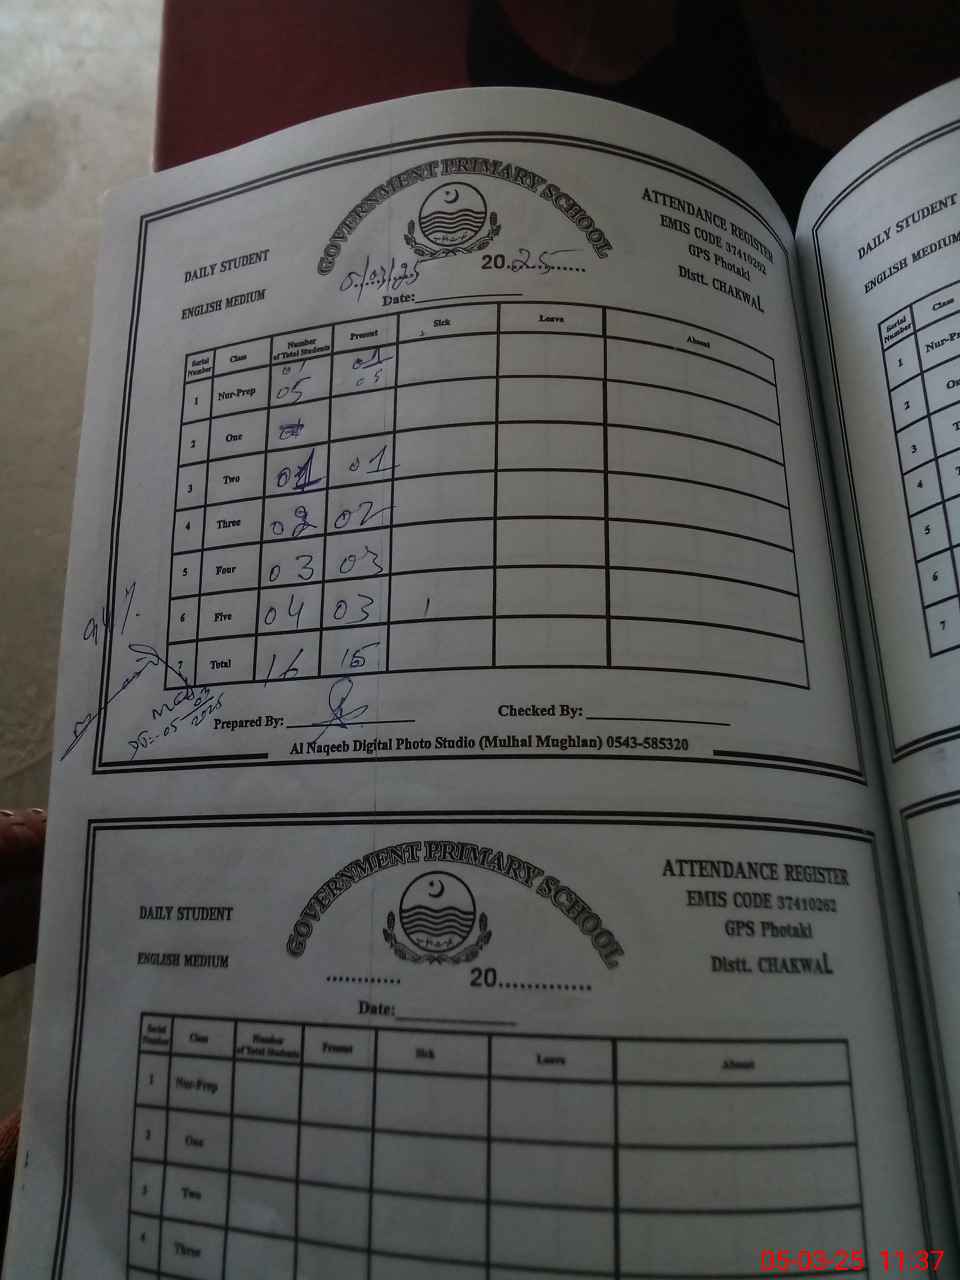 GOVERNMENT PRIMARY SCHOOL
DAILY STUDENT
ENGLISH MEDIUM
ATTENDANCE REGISTER
EMIS CODE 37410262
GPS Photaki
Distt. CHAKWAL
20.25......
Date:
Serial Number Class Number of Total Students Present Sick Leave Absent
01 01
1 Nur-Prep 05 05
2 One
3 Two 01 01
4 Three 02 02
5 Four 03 03
6 Five 04 03 1
7 Total 16 15
94%
05-03-2025
Prepared By: Checked By:
Al Naqeeb Digital Photo Studio (Mulhal Mughlan) 0543-585320
GOVERNMENT PRIMARY SCHOOL
DAILY STUDENT
ENGLISH MEDIUM
ATTENDANCE REGISTER
EMIS CODE 37410262
GPS Photaki
Distt. CHAKWAL
............ 20.............
Date:
Serial Number Class Number of Total Students Present Sick Leave Absent
1 Nur-Prep
2 One
3 Two
4 Three
DAILY STUDENT
ENGLISH MEDIUM
Serial Number Class
1
2
3
4
5
6
7
05-03-25 11:37